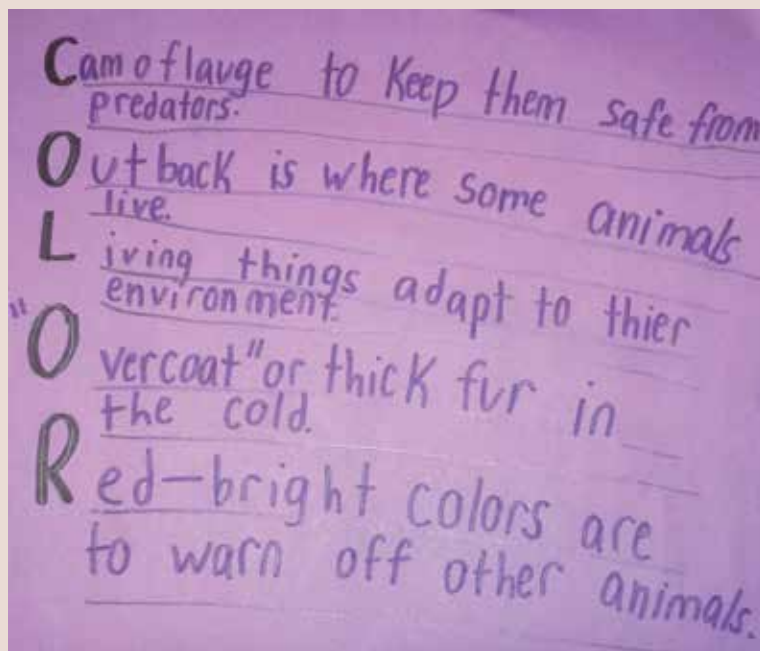 Camoflauge to Keep them safe from
predators.
Outback is where some animals
live.
Living things adapt to thier
environment.
"Overcoat" or thick fur in
the cold.
Red-bright colors are
to warn off other animals.